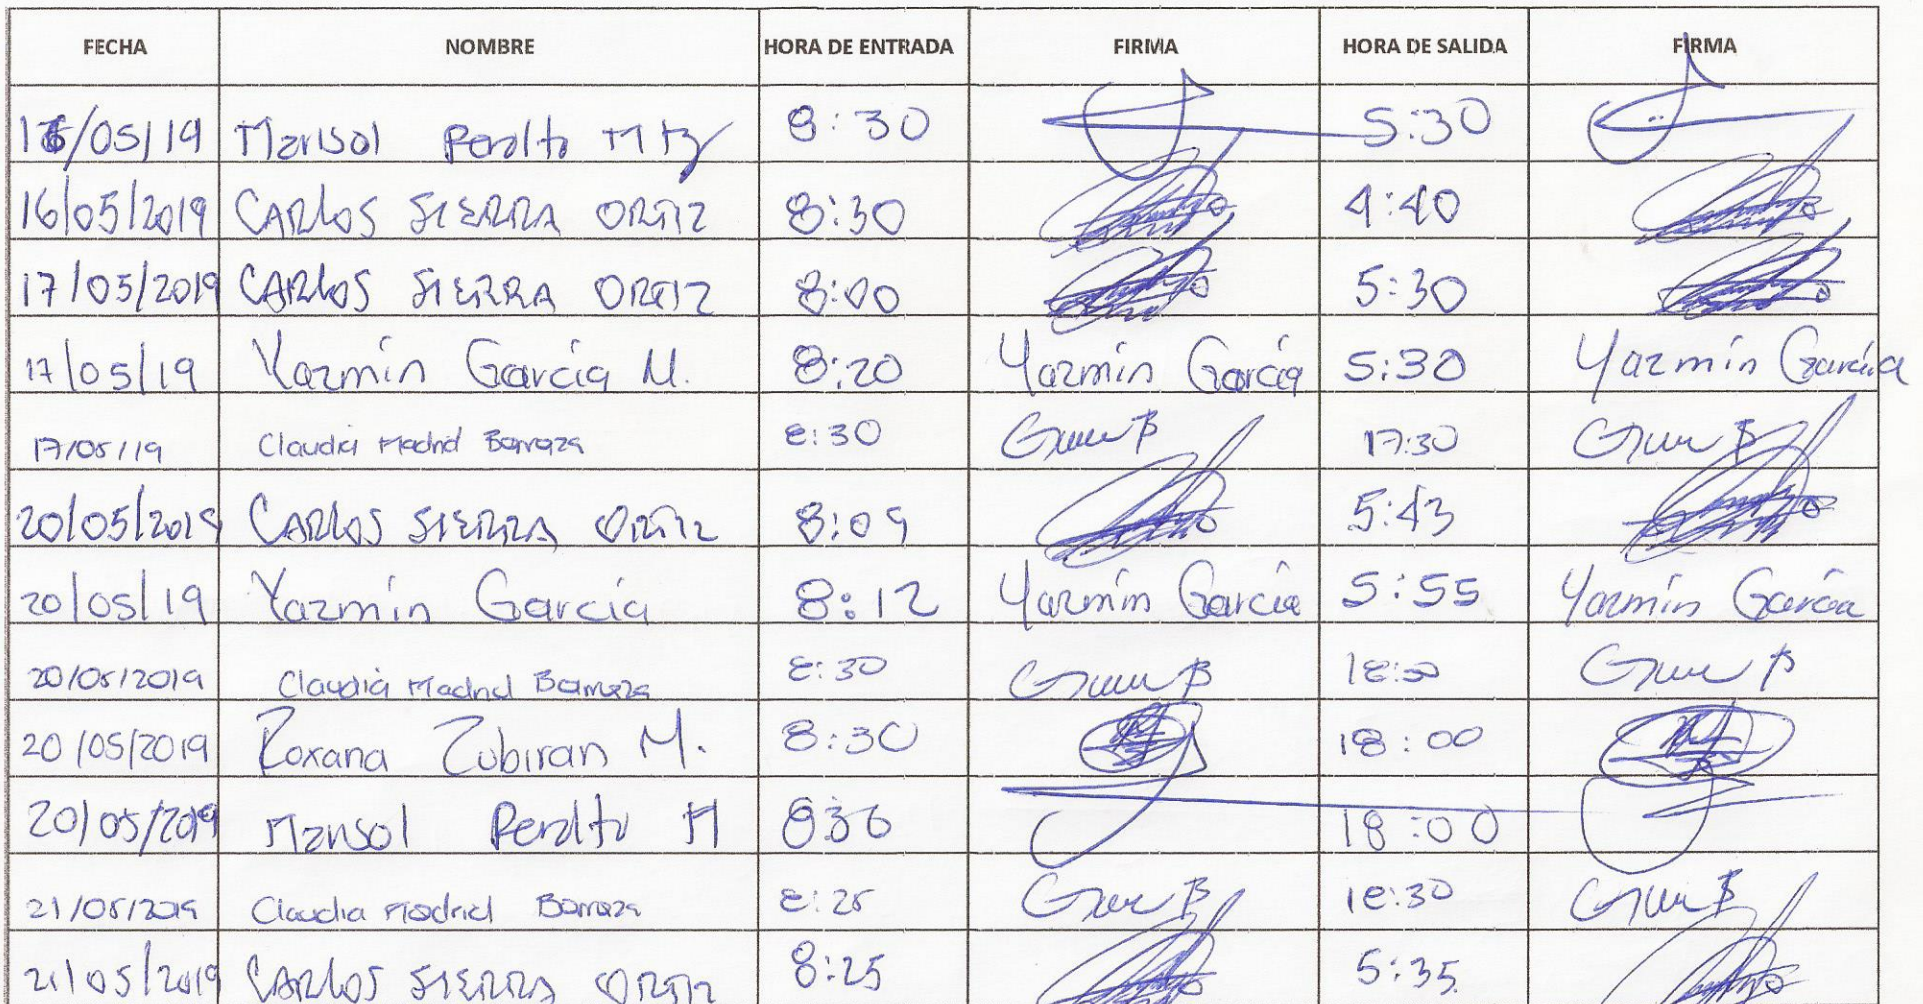 FECHA NOMBRE HORA DE ENTRADA FIRMA HORA DE SALIDA FIRMA
16/05/19 Marisol Peralta Mtz 8:30 5:30
16/05/2019 CARLOS SIERRA ORTIZ 8:30 4:40
17/05/2019 CARLOS SIERRA ORTIZ 8:00 5:30
17/05/19 Yazmín García M. 8:20 Yazmín García 5:30 Yazmín García
17/05/19 Claudia Madrid Barraza 8:30 17:30
20/05/2019 CARLOS SIERRA ORTIZ 8:09 5:43
20/05/19 Yazmín García 8:12 Yazmín García 5:55 Yazmín García
20/05/2019 Claudia Madrid Barraza 8:30
20/05/2019 Roxana Zubiran M. 8:30 18:00
20/05/2019 Marisol Peralta M 830 18:00
21/05/2019 Claudia Madrid Barraza 8:25 18:30
21/05/2019 CARLOS SIERRA ORTIZ 8:25 5:35